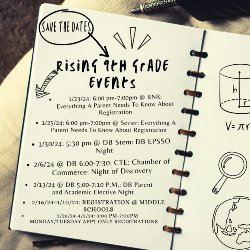 SAVE THE DATES
RISING 9TH GRADE
EVENTS
1/23/24: 6:00 pm-7:00pm @ RNR:
Everything A Parent Needs To Know About
Registration
1/25/24: 6:00 pm-7:00pm @ Sevier: Everything A
Parent Needs To Know About Registration
1/30/24: 5:30 pm @ DB Stem: DB EPSSO
Night
2/6/24 @ DB 6:00-7:30: CTE: Chamber of
Commerce: Night of Discovery
2/13/24 @ DB 5:00-7:10 P.M.: DB Parent
and Academic Elective Night
2/16/24-4/10/24: REGISTRATION @ MIDDLE
SCHOOLS
3:00 PM-7:00PM
MONDAY/TUESDAY APPT ONLY REGISTRATIONS